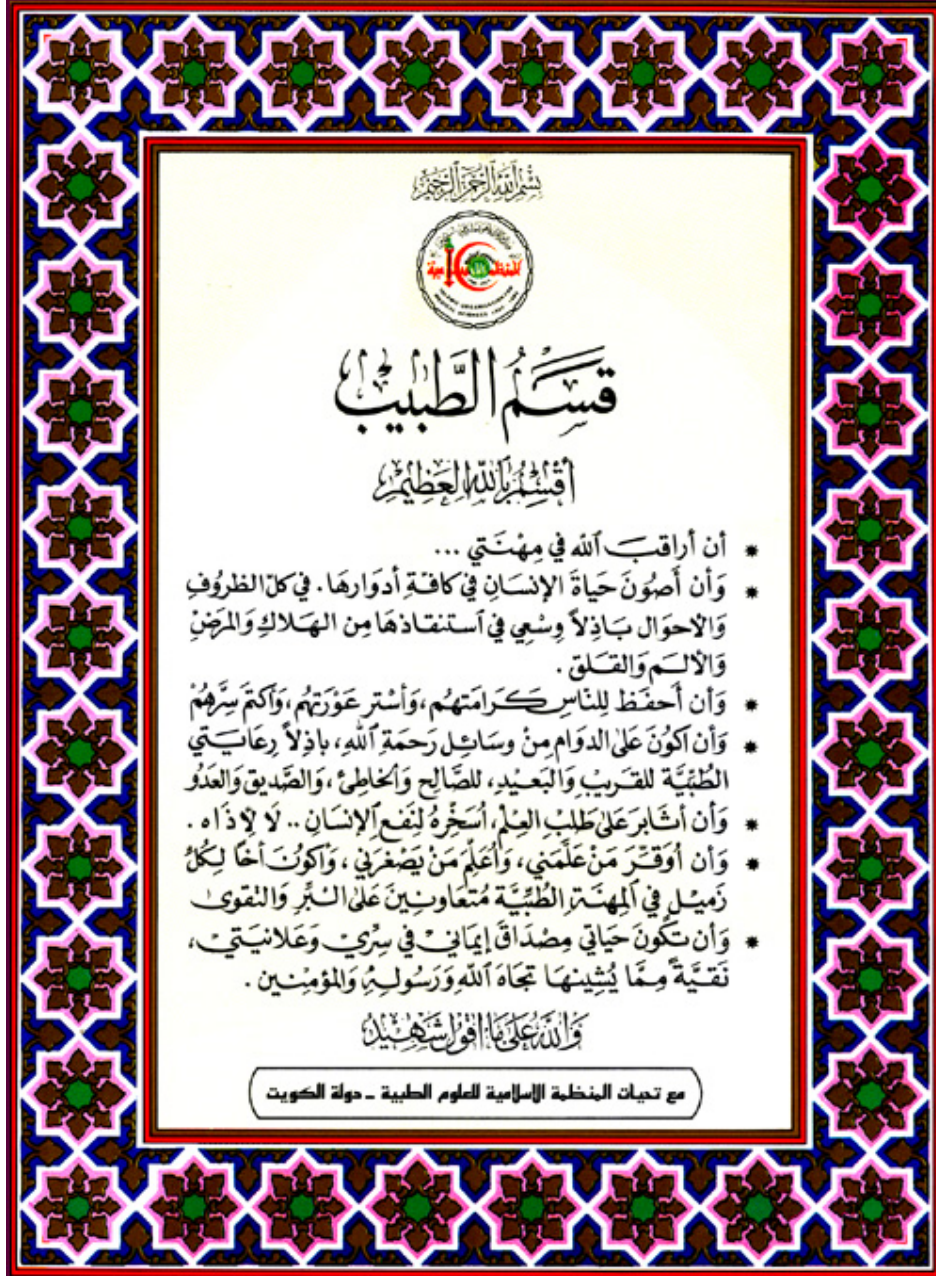 بِسْمِ ٱللَّهِ ٱلرَّحْمَٰنِ ٱلرَّحِيمِ
المنظمة الإسلامية
قَسَمُ الطَّبيب
أقْسِمُ بِٱللَّهِ العَظِيم
* أن أراقبَ ٱلله في مِهْنَتي ...
* وَأن أصُونَ حَيَاةَ الإنسَانِ في كافةِ أدوَارهَا . في كلّ الظروُفِ
وَالأحوَال بَاذِلاً وِسْعِي في ٱستنقاذهَا مِن الهَلاكِ وَالمَرَضْ
وَالألَم وَالقَلق .
* وَأن أحفَظ لِلنَّاسِ كَرَامَتهُم ، وَأسْتر عَوْرَتهُم ، وَأكتمَ سِرَّهُمْ
* وَأن أكوُنَ عَلى الدوَام مِنْ وسَائِل رَحمَةِ ٱللهِ ، باذِلاً رعَايَتي
الطُبِّيَّة للقَريبْ وَالبَعيْدِ ، للصَّالح وَالخاطئ ، وَالصَّديق وَالعَدُو
* وَأن أثابرَ عَلى طَلبِ العِلْم ، أسَخِّرهُ لِنَفعِ ٱلإنسَانِ .. لَا لأذَاه .
* وَأن أوَقّرَ مَنْ عَلَّمَني ، وَأعَلِّمَ مَنْ يَصْغرني ، وَأكوُنَ أخًا لِكُلِّ
زَميْلٍ في المِهنَةِ الطُبِّيَّة مُتعَاونِينَ عَلىٰ البِّرِ وَالتقوىٰ
* وَأن تكوُنَ حَيَاتي مِصْدَاقَ إيمَاني في سِرّي وَعَلانيَتي ،
نَقيَّةً مِمَّا يُشِينهَا تجَاهَ ٱللهِ وَرَسُولهِ وَالمؤمنِين .
وَٱللَّهُ عَلَى مَا أقول شَهِيْدٌ
مع تحيات المنظمة الاسلامية للعلوم الطبية ـ دولة الكويت